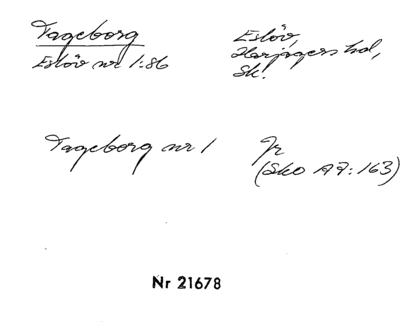 Tageborg
Eslöv nr 1:86
Eslöv,
Harjagers hd,
Sk.
Tageborg nr 1
Jr
(Sko A7:163)
Nr 21678